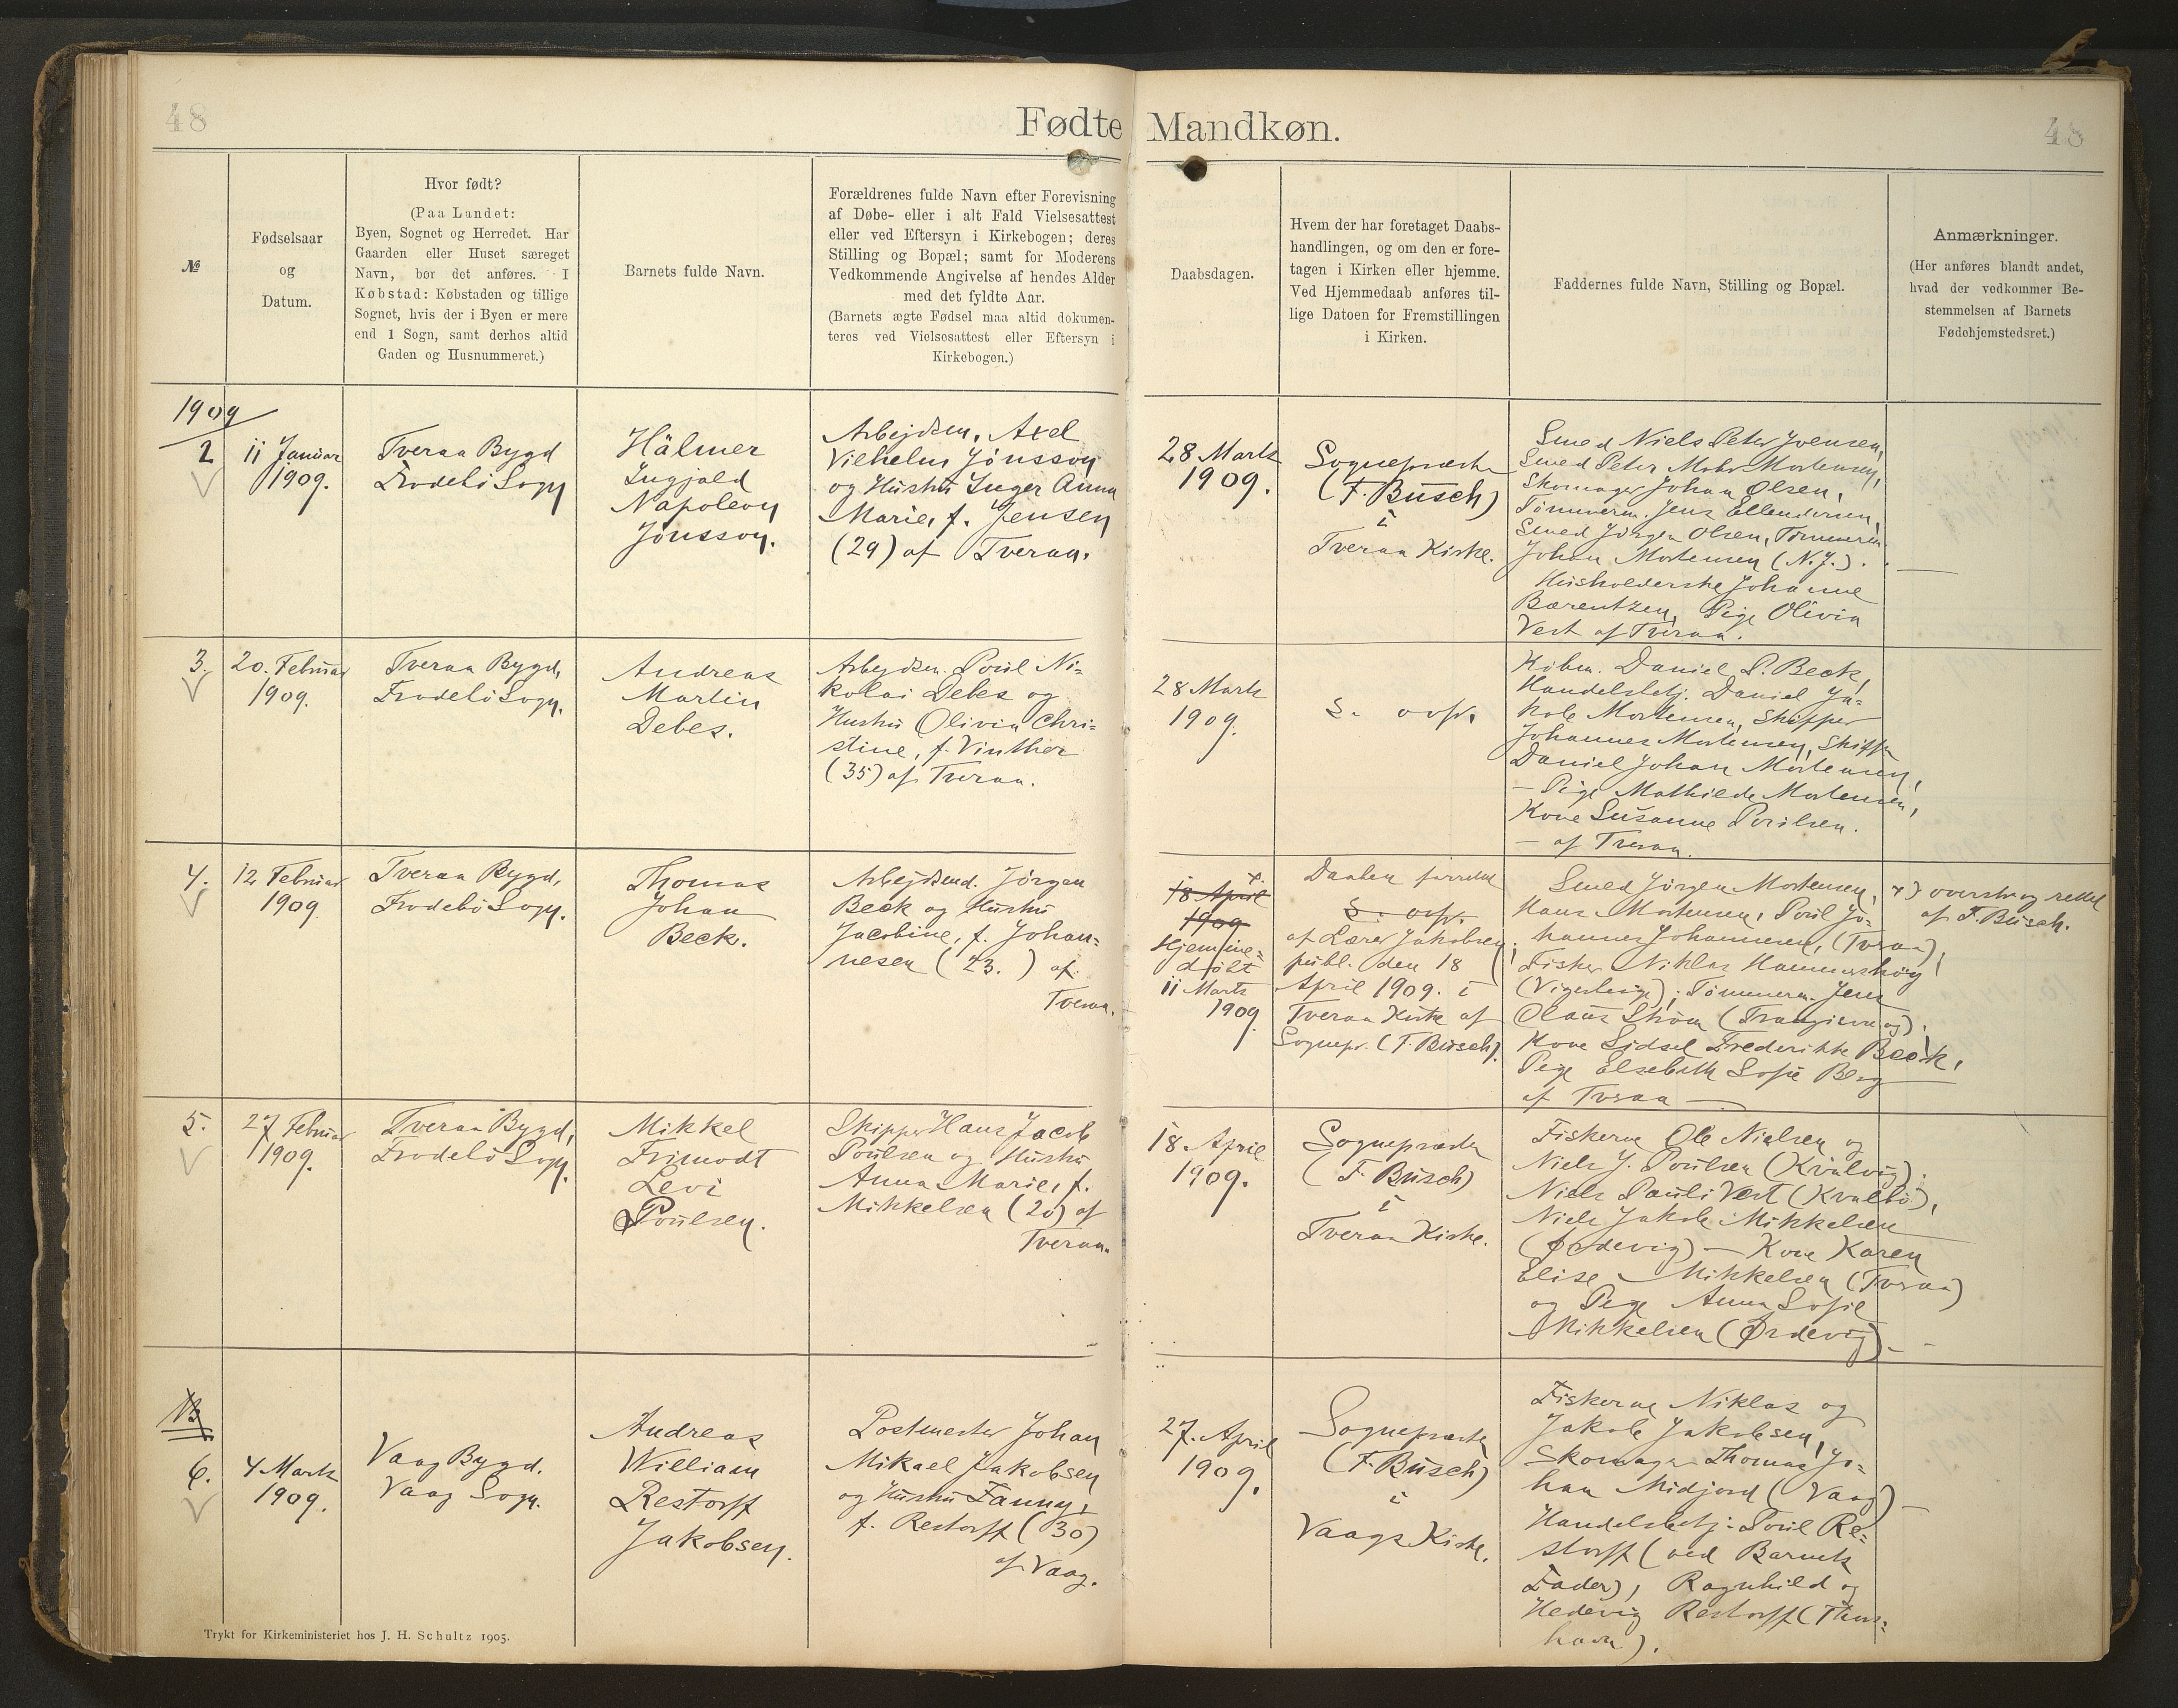 48
Fødte Mandkøn.
48
№
Fødselsaar
og
Datum.
Hvor født?
(Paa Landet:
Byen, Sognet og Herredet. Har
Gaarden eller Huset særeget
Navn, bør det anføres. I
Købstad: Købstaden og tillige
Sognet, hvis der i Byen er mere
end 1 Sogn, samt derhos altid
Gaden og Husnummeret.)
Barnets fulde Navn.
Forældrenes fulde Navn efter Forevisning
af Døbe- eller i alt Fald Vielsesattest
eller ved Eftersyn i Kirkebogen; deres
Stilling og Bopæl; samt for Moderens
Vedkommende Angivelse af hendes Alder
med det fyldte Aar.
(Barnets ægte Fødsel maa altid dokumen-
teres ved Vielsesattest eller Eftersyn i
Kirkebogen.)
Daabsdagen.
Hvem der har foretaget Daabs-
handlingen, og om den er fore-
tagen i Kirken eller hjemme.
Ved Hjemmedaab anføres til-
lige Datoen for Fremstillingen
i Kirken.
Faddernes fulde Navn, Stilling og Bopæl.
Anmærkninger.
(Her anføres blandt andet,
hvad der vedkommer Be-
stemmelsen af Barnets
Fødehjemstedsret.)
1909
2
11 Januar
1909.
Tveraa Bygd
Frodebö Sogn
Hälmer
Ingjald
Napoleon
Jönsson.
Arbejdsm. Axel
Vilhelm Jönsson
og Hustru Inger Anna
Marie, f. Jensen
(29) af Tveraa.
28 Marts
1909.
Sognepræsten
(F. Busch)
i
Tveraa Kirke.
Smed Niels Peter Joensen,
Smed Peter Mohr Mortensen,
Skomager Johan Olsen,
Tømmerm. Jens Ellendersen,
Smed Jörgen Olsen, Tömmerm.
Johan Mortensen (N.J.).
Husholderske Johanne
Bærentzen, Pige Olivia
Vest af Tveraa.
3.
20. Februar
1909.
Tveraa Bygd,
Frodebö Sogn.
Andreas
Martin
Debes.
Arbejdsm. Poul Ni=
kolai Debes og
Hustru Olivia Chri=
stine, f. Vinther
(35) af Tveraa.
28 Marts
1909.
S. ovfr.
Købm. Daniel P. Beck,
Handelsbetj. Daniel Ja=
kob Mortensen, Skipper
Johannes Mortensen, Skipper
Daniel Johan Mortensen,
— Pige Mathilde Mortensen,
Kone Susanne Poulsen.
— af Tveraa.
4.
12 Februar
1909.
Tveraa Bygd,
Frodebö Sogn.
Thomas
Johan
Beck.
Arbejdsmd. Jörgen
Beck og Hustru
Jacobine, f. Johan=
nesen (23.) af
Tveraa.
18 April x.
1909
Hjemme=
døbt
11 Marts
1909
Daaben forrettet
S. ovfr.
af Lærer Jakobsen,
publ. den 18
April 1909. i
Tveraa Kirke af
Sognepr. (F. Busch).
Smed Jörgen Mortensen,
Hans Mortensen, Poul Jo=
hannes Johannesen, (Tveraa),
Fisker Niklas Hammershøg
Tømmerm. Jens
Olaus Strøm
Kone Sidsel Frederikke Beck,
Pige Elsebeth Sofie Berg
af Tveraa —
x) overstr. og rettet
af F. Busch.
5.
27 Februar
1909.
Tveraa Bygd,
Frodebö Sogn.
Mikkel
Frimodt
Levi
Poulsen.
Skipper Hans Jacob
Poulsen og Hustru
Anna Marie, f.
Mikkelsen (20) af
Tveraa.
18 April
1909.
Sognepræsten
(F. Busch)
i
Tveraa Kirke.
Fiskerne Ole Nielsen og
Niels J. Poulsen (Kvalvig);
Niels Pauli Vest (Kvalbö),
Niels Jakob Mikkelsen
(Ørdevig) — Kone Karen
Elise Mikkelsen (Tveraa)
og Pige Anna Sofie
Mikkelsen (Ørdevig) —
6.
4 Marts
1909.
Vaag Bygd.
Vaag Sogn.
Andreas
William
Restorff
Jakobsen.
Postmester Johan
Mikael Jakobsen
og Hustru Fanny,
f. Restorff (30)
af Vaag.
27. April
1909.
Sognepræsten
(F. Busch)
i
Vaags Kirke.
Fiskerne Niklas og
Jakob Jakobsen,
Skomager Thomas Jo=
han Midjord (Vaag) —
Handelsbetj. Poul Re=
storff (ved Barnets
Fader), Ragnhild og
Hedevig Restorff (Thors=
havn).
Trykt for Kirkeministeriet hos J. H. Schultz 1905.